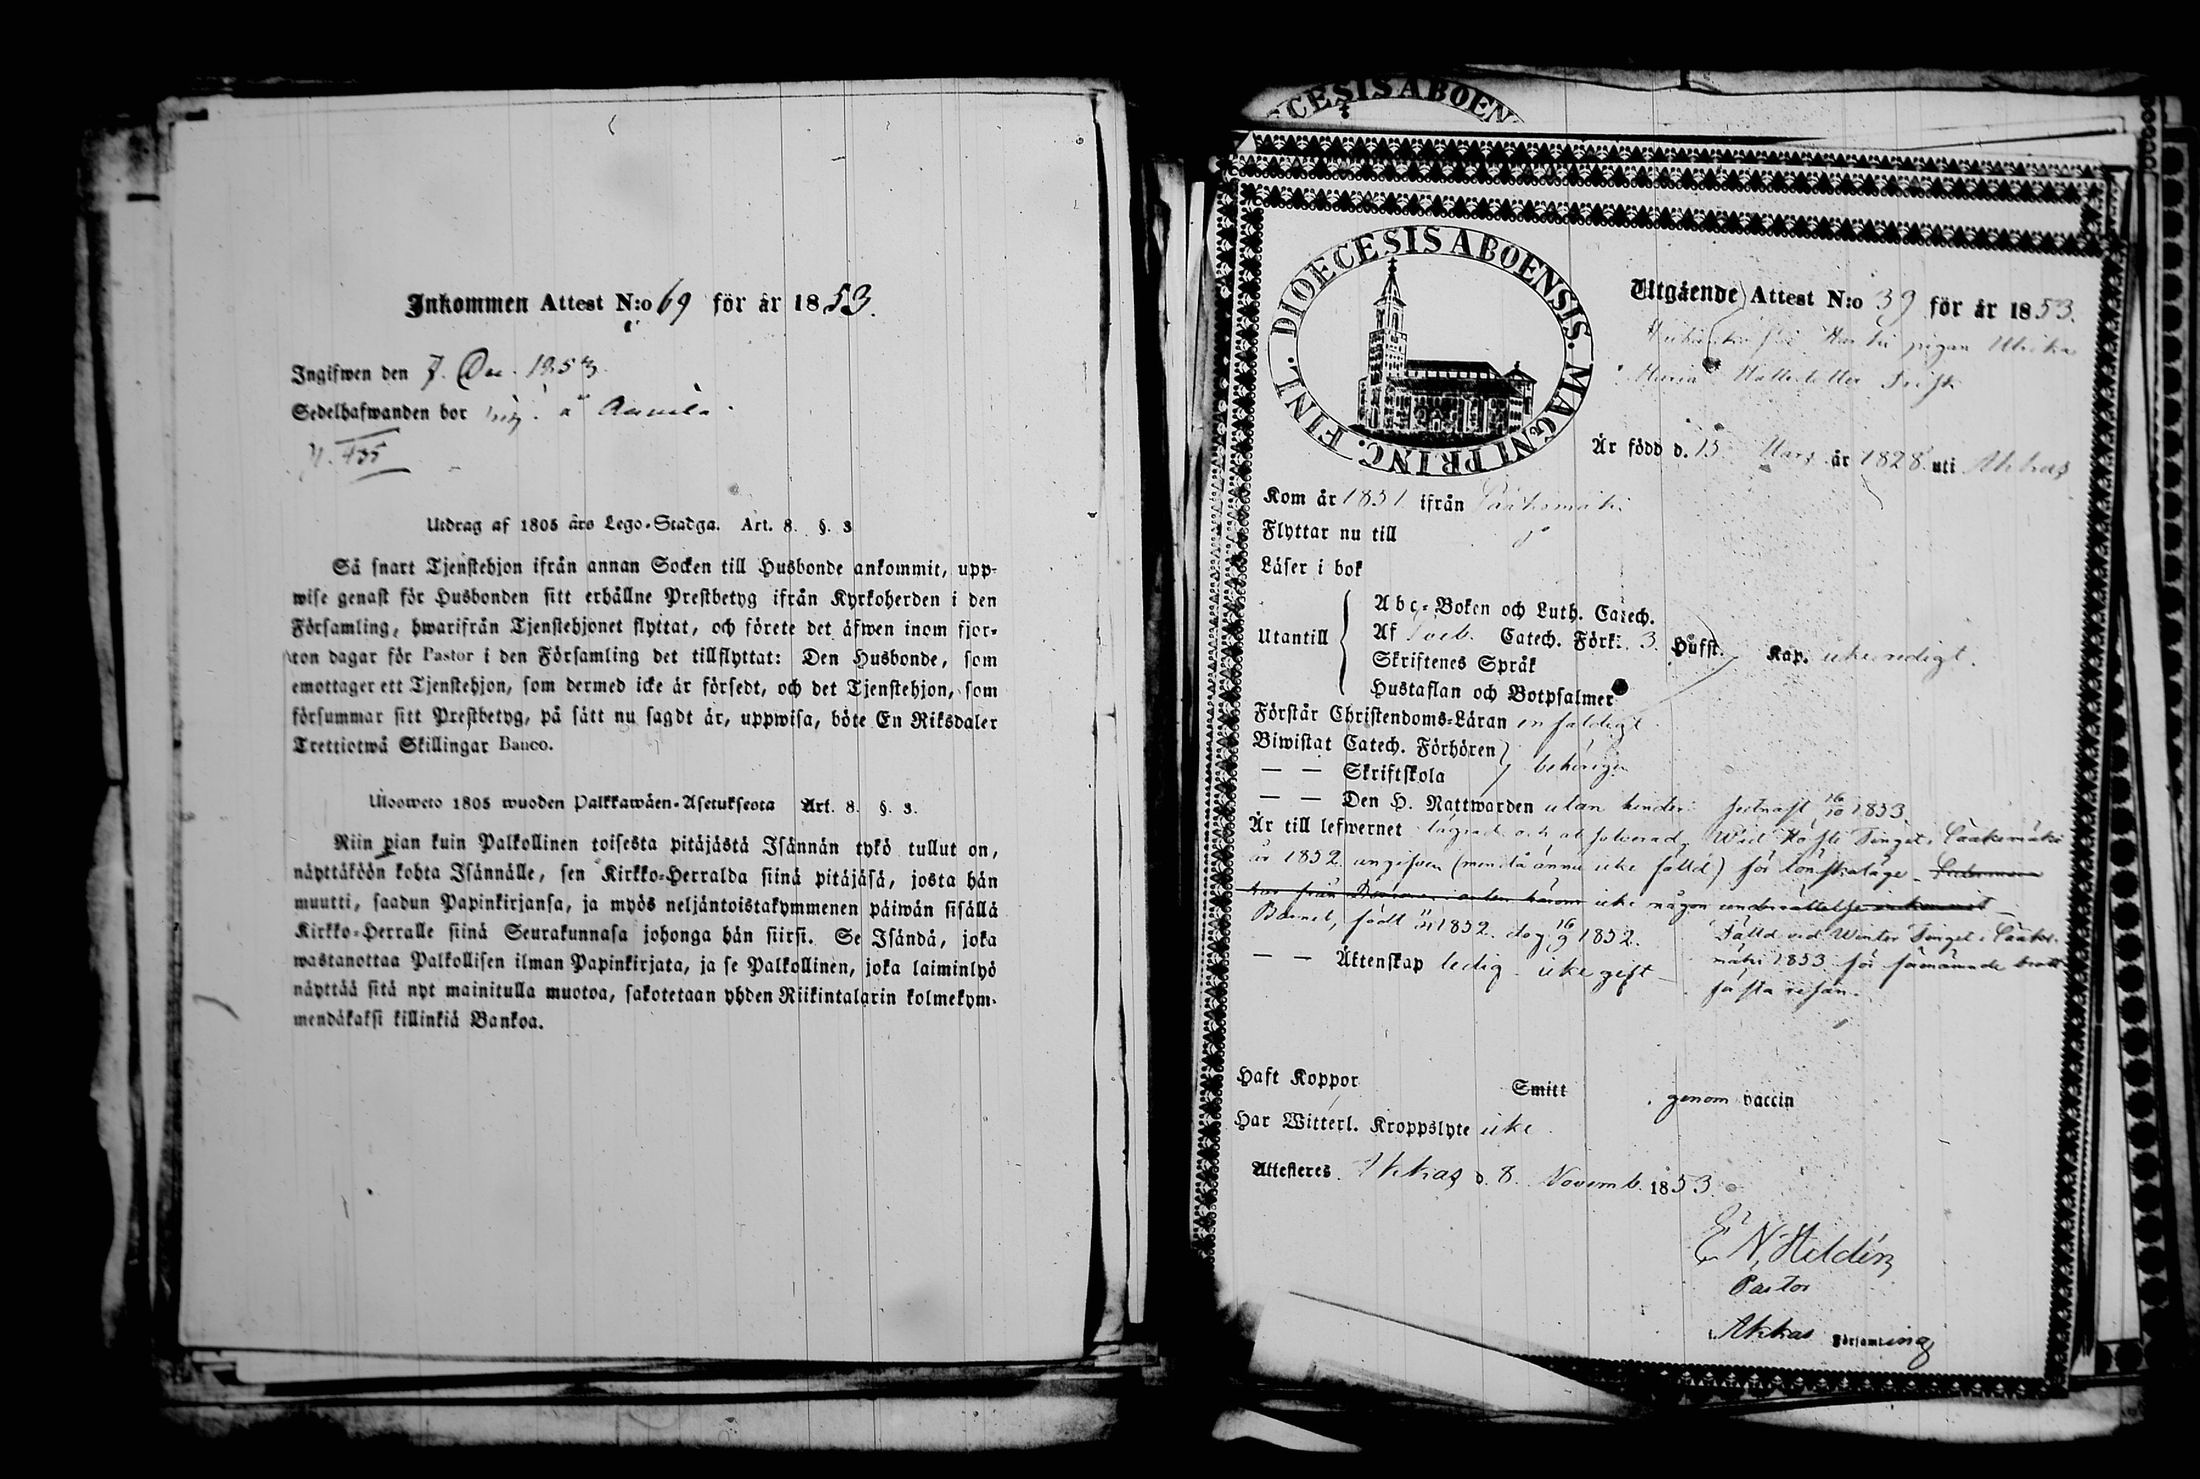 Inkommen Attest N:o 69 för år 1853.
Ingifwen den 7. Dec. 1853.
Sedelhafwanden bor å
Utdrag af 1805 års Lego-Stadga. Art. 8. §. 3
Så snart Tjenstehjon ifrån annan Socken till Husbonde ankommit, upp-
wise genast för Husbonden sitt erhållne Prestbetyg ifrån Kyrkoherden i den
Församling, hwarifrån Tjenstehjonet flyttat, och förete det äfwen inom fjor-
ton dagar för Pastor i den Församling det tillflyttat: Den Husbonde, som
emottager ett Tjenstehjon, som dermed icke är försedt, och det Tjenstehjon, som
försummar sitt Prestbetyg, på sätt nu sagdt är, uppwisa, böte En Riksdaler
Trettiotwå Skillingar Banco.
Uloosweto 1805 wuoden Palkkawäen-Asetuksesta Art. 8. §. 3.
Niin pian kuin Palkollinen toisesta pitäjästä Isännän tykö tullut on,
näyttäköön kohta Isännälle, sen Kirkko-Herralda siinä pitäjäsä, josta hän
muutti, saadun Papinkirjansa, ja myös neljäntoistakymmenen päiwän sisällä
Kirkko-Herralle siinä Seurakunnasa johonga hän siirsi. Se Isändä, joka
wastanottaa Palkollisen ilman Papinkirjata, ja se Palkollinen, joka laiminlyö
näyttää sitä nyt mainitulla muotoa, sakotetaan yhden Riikintalarin kolmekym-
mendäkaksi killinkiä Bankoa.
DIOECESIS ABOEN
DIOECESIS ABOENSIS. MAGNI PRINC. FINL.
Utgående Attest N:o 39 för år 1853.
pigan Ulrika
Maria
Är född d. 15 Mars år 1828 uti Akkas
Kom år 1851 ifrån Sääksmäki
Flyttar nu till
Läser i bok
Utantill
Abc-Boken och Luth. Catech.
Af Sveb. Catech. Förk. 3. Hufst. Kap. icke redigt.
Skriftenes Språk
Hustaflan och Botpsalmer
Förstår Christendoms-Läran enfaldigt
Biwistat Catech. Förhören
— — Skriftskola behörigen
— — Den H. Nattwarden utan hinder sednast 16/10 1853.
Är till lefwernet lagförd och absolverad, Wid Höste Tinget i Sääksmäki
år 1852 angifven (men då ännu icke fälld) för lönskaläge
icke någon
Barnet, födt 1852. dog 16/9 1852. Fälld vid Winter Tinget i Sääks-
mäki 1853 för förenämnde brott
första resan.
— — Äktenskap ledig – icke gift –
Haft Koppor Smitt genom vaccin
Har Witterl. Kroppslyte icke
Attesteres. Akkas d. 8. Novemb. 1853.
E N Heldén
Pastor
i Akkas Församling